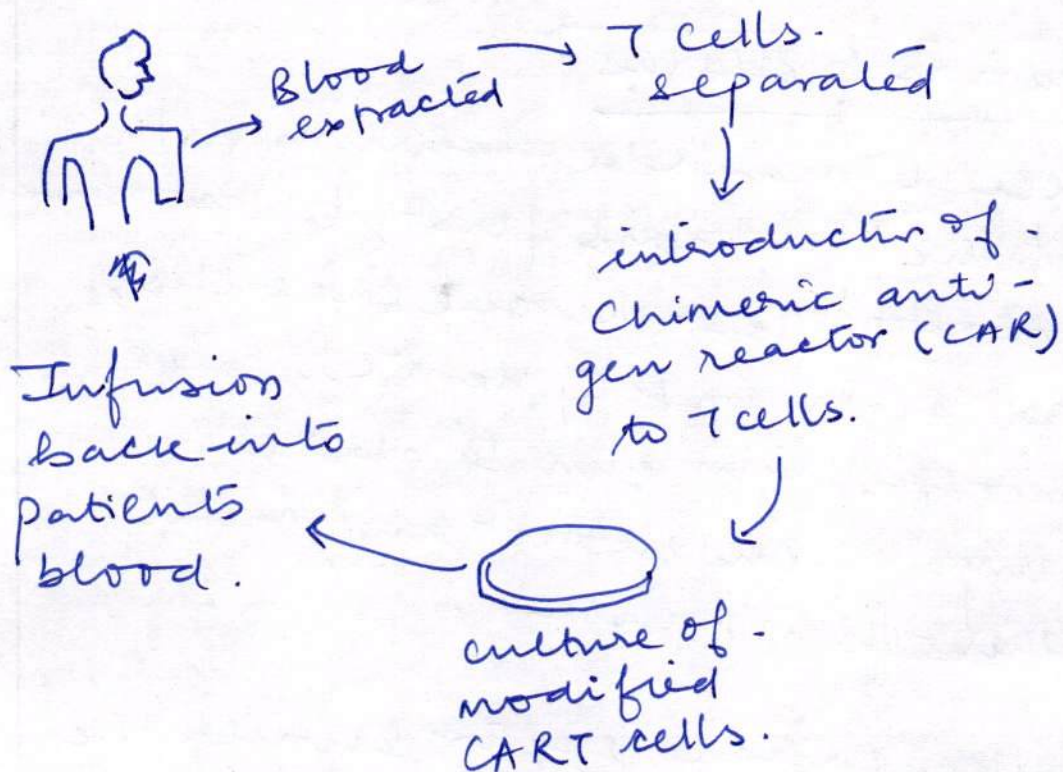 Blood
extracted
T cells.
separated
introduction of -
Chimeric anti-
gen reactor (CAR)
to T cells.
culture of -
modified
CART cells.
Infusion
back into
patients
blood.